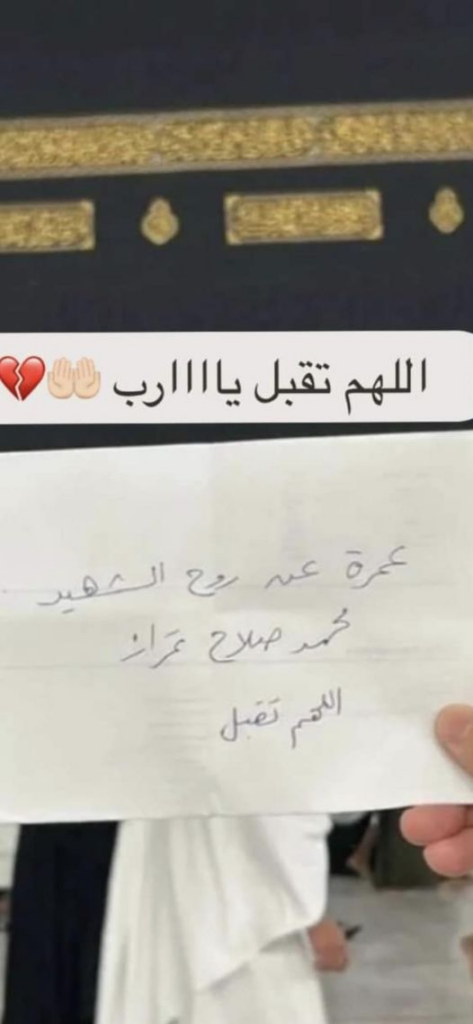 اللهم تقبل يااااارب 🤲🏻💔
عمرة عن روح الشهيد
محمد صلاح عزاز
اللهم تقبل